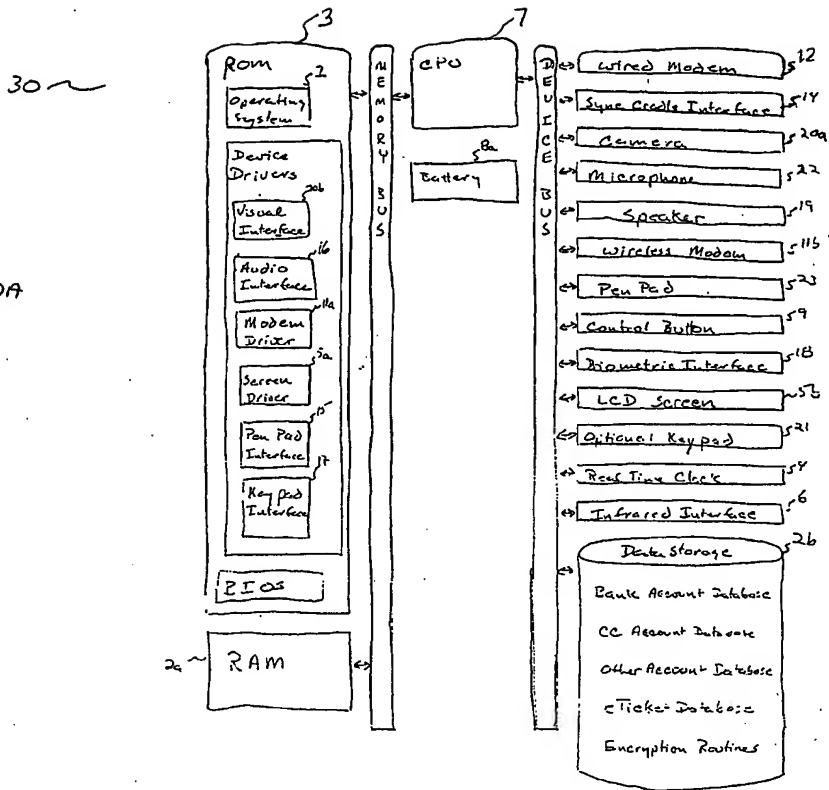 30
DA
3
ROM
2
Operating
System
Device
Drivers
20b
Visual
Interface
16
Audio
Interface
11a
Modem
Driver
5a
Screen
Driver
15
Pen Pad
Interface
17
Keypad
Interface
BIOS
2a
RAM
MEMORY BUS
7
CPU
8a
Battery
DEVICE BUS
Wired Modem 12
Sync Cradle Interface 14
Camera 20a
Microphone 22
Speaker 19
Wireless Modem 11b
Pen Pad 23
Control Button 9
Biometric Interface 18
LCD Screen 5b
Optional Keypad 21
Real Time Clock 4
Infrared Interface 6
Data Storage 2b
Bank Account Database
CC Account Database
Other Account Database
eTicket Database
Encryption Routines